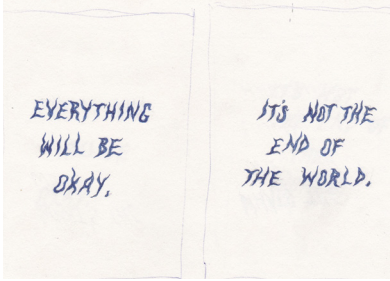 EVERYTHING
WILL BE
OKAY.
IT'S NOT THE
END OF
THE WORLD.